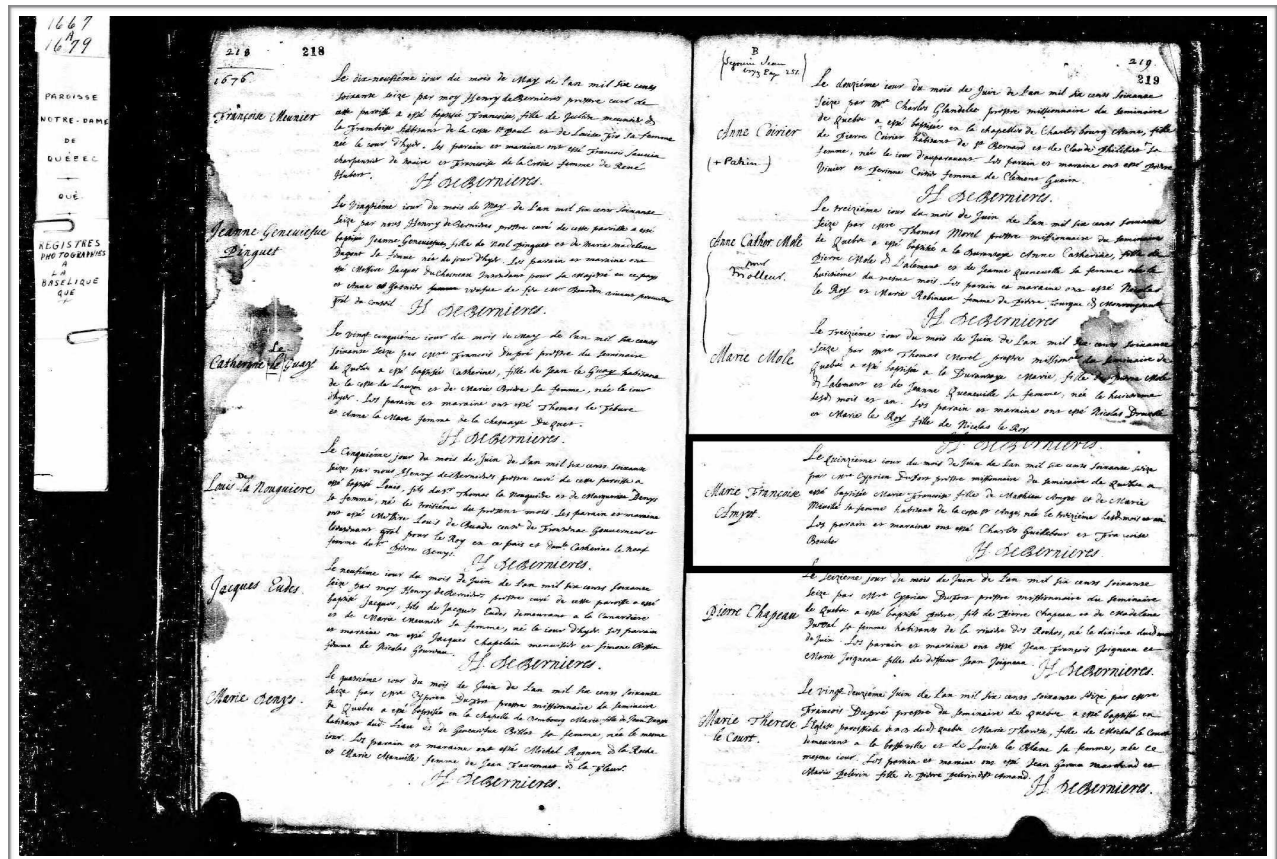 1667
A
1679
PAROISSE
NOTRE-DAME
DE
QUÉBEC
QUÉ.
REGISTRES
PHOTOGRAPHIÉS
A
LA
BASELIQUE
QUE
218 218
1676.
Françoise Meunier
Le dix-neufième iour du mois de May de l'an mil six cens
soixante seize par moy Henry de Bernieres prestre curé de
cette parroisse a esté baptisée Françoise, fille de Julien meunier dit
la framboise habitant de la coste St Paul et de Louise fro sa femme
née le iour d'hyer. Les parain et maraine ont esté François
charpentier de navire et Françoise de la Croix femme de René
Hubert.
H. DeBernieres.
Jeanne Geneviefve
Pinguet
Le vingtième iour du mois de May de l'an mil six cens soixante
seize par nous Henry de Bernieres prestre curé de cette parroisse a esté
baptisée Jeanne-Geneviefve, fille de Noel Pinguet et de Marie madelene
Dupont sa femme née du iour d'hyer. Les parain et maraine ont
esté Messire Jacques DuChesneau Intendant pour sa Majesté en ce pays
et Anne vefve de feu Mr Bourdon vivant procureur
gnral du conseil
H. DeBernieres.
Catherine le Guay
Le
Le vingt cinquième iour du mois de May de l'an mil six cens
soixante seize par Mre François Dupré prestre du seminaire
de Quebec a esté baptisée Catherine, fille de Jean le Guay habitant
de la coste de Lauzon et de Marie Brière sa femme, née le iour
d'hyer. Les parain et maraine ont esté Thomas le febure
et Anne la Mare femme de la chesnaye Duquet.
H. DeBernieres.
Louis de la Nouguiere
Le Cinquième jour du mois de Juin de l'an mil six cens soixante
seize par nous Henry de Bernieres prestre curé de cette paroisse a
esté baptisé Louis, fils de Sr Thomas la Nouguiere et de Marguerite Denys
sa femme, né le troisième du present mois. Les parain et maraine
ont esté Messire Louis de Buade conte de Frontenac Gouverneur et
lieutenant gñral pour le Roy en ce païs et Dame Catherine le Neuf
femme du Sr Pierre Denys.
H. DeBernieres.
Jacques Eudes.
Le neufième iour du mois de Juin de l'an mil six cens soixante
seize par moy Henry de Bernieres prestre curé de cette paroisse a esté
baptisé Jacques, fils de Jacques Eudes demeurant a la Canardière
et de Marie Meunier sa femme, né le iour d'hyer. Les parain
et maraine ont esté Jacques Chapelain menuisier et Simone
femme de Nicolas Gouvrau.
H. DeBernieres.
Marie Denys.
Le iour du mois de Juin de l'an mil six cens soixante
seize par Mre Cyprien Dufort prestre missionnaire du seminaire
de Quebec a esté baptisée en la chapelle de Marie, fille de Jean Denys
habitant dud. lieu et de Geneviefve Billot sa femme, née le mesme
iour. Les parain et maraine ont esté Michel Rognon dit la Roche
et Marie femme de Jean Fauconnet dit la fleur.
H. DeBernieres.
B
219
219
Anne Coirier
(+ Patin)
Le douzième iour du mois de Juin de l'an mil six cens soixante
seize par Mre Charles Glandelet prestre missionnaire du seminaire
de Quebec a esté baptisée en la chapelle de Charlesbourg Anne, fille
de Pierre Coirier habitant de St Bernard et de Claude Philibert sa
femme, née le iour d'auparavant. Les parain et maraine ont esté
Vinier et Perinne Coirier femme de Clement Guerin.
H. DeBernieres.
Anne Cather Mole
pour
Molleur.
Le treizième iour du mois de Juin de l'an mil six cens soixante
seize par Mre Thomas Morel prestre missionnaire du seminaire
de Quebec a esté baptisée a la Durantaye Anne Catherine, fille de
Pierre Mole dit l'alemant et de Jeanne Queneville sa femme née le
huitième du mesme mois. Les parain et maraine ont esté Nicolas
le Roy et Marie Robineau femme de
H. DeBernieres
Marie Mole
Le treizième iour du mois de Juin de l'an mil six cens soixante
seize par Mre Thomas Morel prestre missionre du seminaire de
Quebec a esté baptisée a la Durantaye Marie, fille de Pierre Mole
dit l'alemant et de Jeanne Queneville sa femme, née le huitième
desd. mois et an. Les parain et maraine ont esté Nicolas
et Marie le Roy fille de Nicolas le Roy
H. DeBernieres.
Marie Françoise
Amyot.
Le Quinzième iour du mois de Juin de l'an mil six cens soixante seize
par Mre Cyprien Dufort prestre missionnaire du seminaire de Quebec a
esté baptisée Marie Françoise fille de Mathieu Amyot et de Marie
Miville sa femme habitant de la coste St Ange, née le treizième desd. mois et an
Les parain et maraine ont esté Charles Guillebour et Françoise
Boucher
H. DeBernieres.
Pierre Chapeau
Le Seizième jour du mois de Juin de l'an mil six cens soixante
seize par Mre Cyprien Dufort prestre missionnaire du seminaire
de Quebec a esté baptisé Pierre, fils de Pierre Chapeau et de Madelene
Duval sa femme habitants de la rivière des Roches, né le dixième dud.
de Juin. Les parain et maraine ont esté Jean François Joigneau et
Marie Joigneau fille de deffunt Jean Joigneau.
H. DeBernieres.
Marie Therese
le Court.
Le Vingt deuxième Juin de l'an mil six cens soixante seize par Mre
François Dupré prestre du seminaire de Quebec a esté baptisée en
l'Eglise paroissiale dud. Quebec Marie Therese, fille de Michel le Court
demeurant a la basseville et de Louise le Blanc sa femme, née ce
mesme iour. Les parain et maraine ont esté Jean Garnier marchand et
Marie Pelerin fille de Pierre Pelerin dit St Amand.
H. DeBernieres.